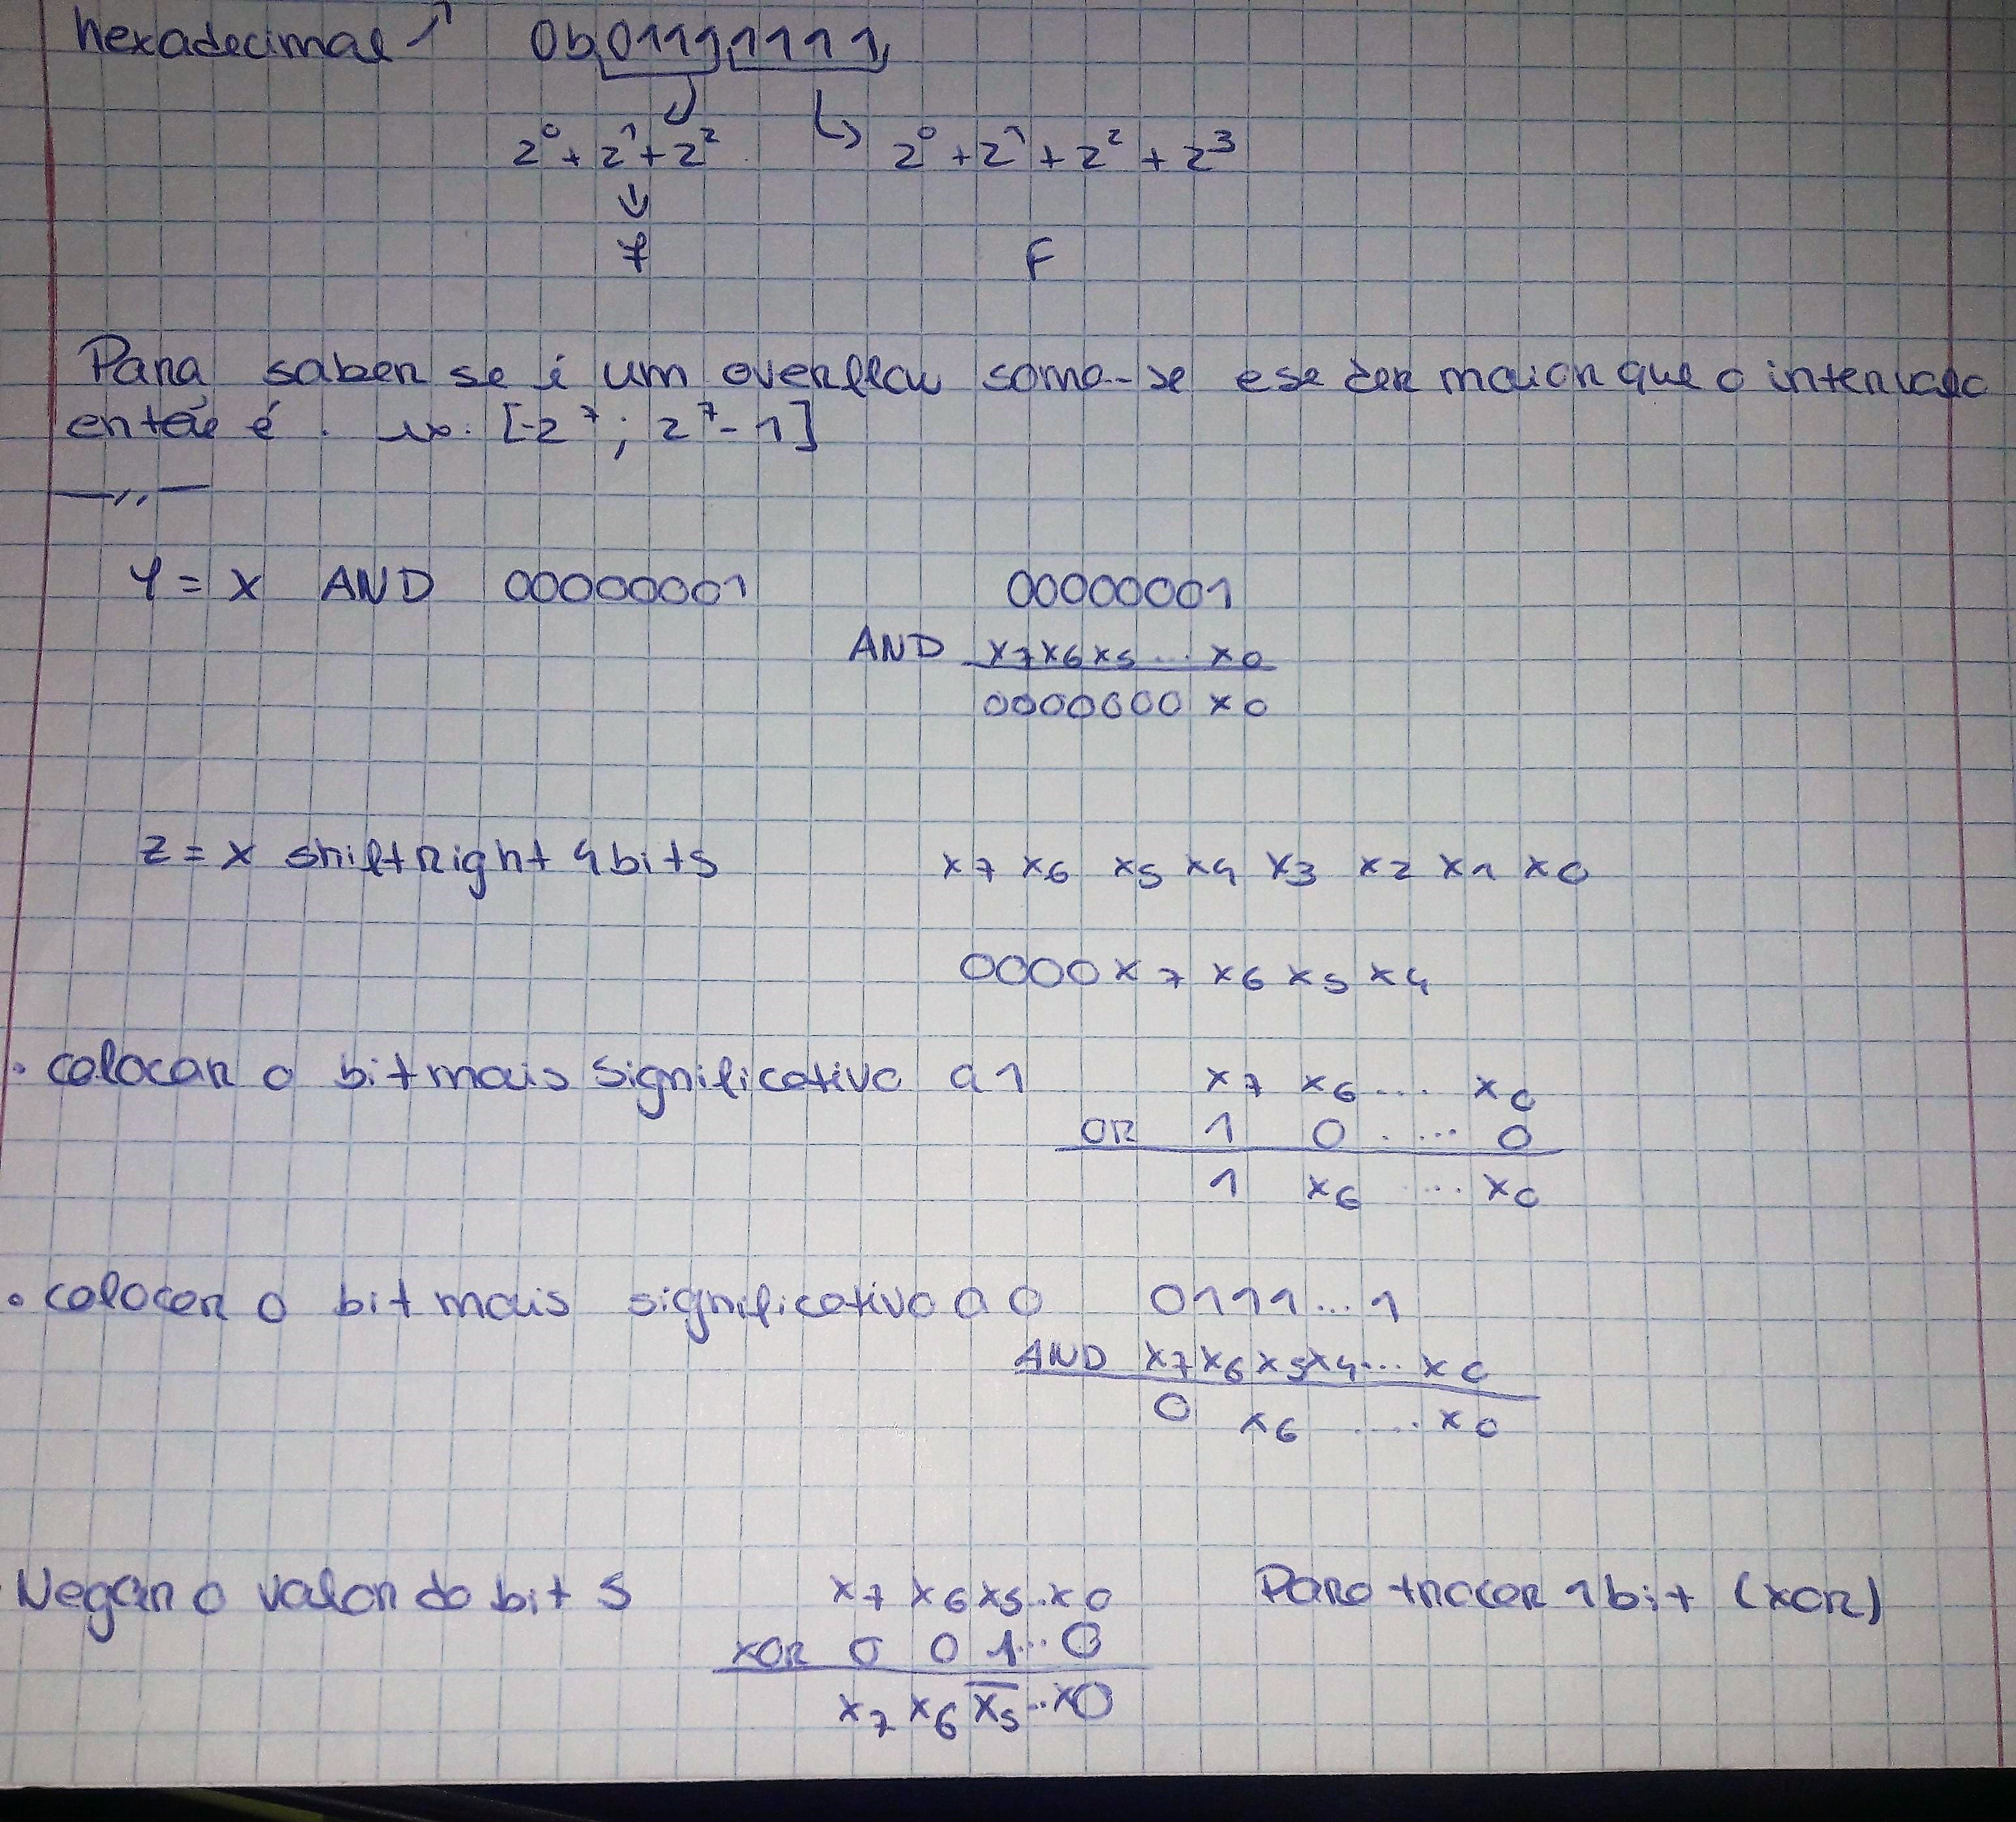 hexadecimal 0b01111111
2⁰ + 2¹ + 2² 2⁰ + 2¹ + 2² + 2³
7 F
Para saber se é um overflow soma-se e se der maior que o intervalo
então é. ex. [-2⁷; 2⁷-1]
Y = X AND 00000001 00000001
AND x7x6x5...x0
0000000 x0
Z = X shiftRight 4 bits x7 x6 x5 x4 x3 x2 x1 x0
0000x7 x6 x5 x4
• colocar o bit mais significativo a 1 x7 x6 ... x0
OR 1 0 ... 0
1 x6 ... x0
• colocar o bit mais significativo a 0 0111...1
AND x7x6x5x4...x0
0 x6 ... x0
Negar o valor do bit 5 x7 x6 x5..x0 Para trocar 1 bit (XOR)
XOR 0 0 1...0
x7 x6 x̅5...x0